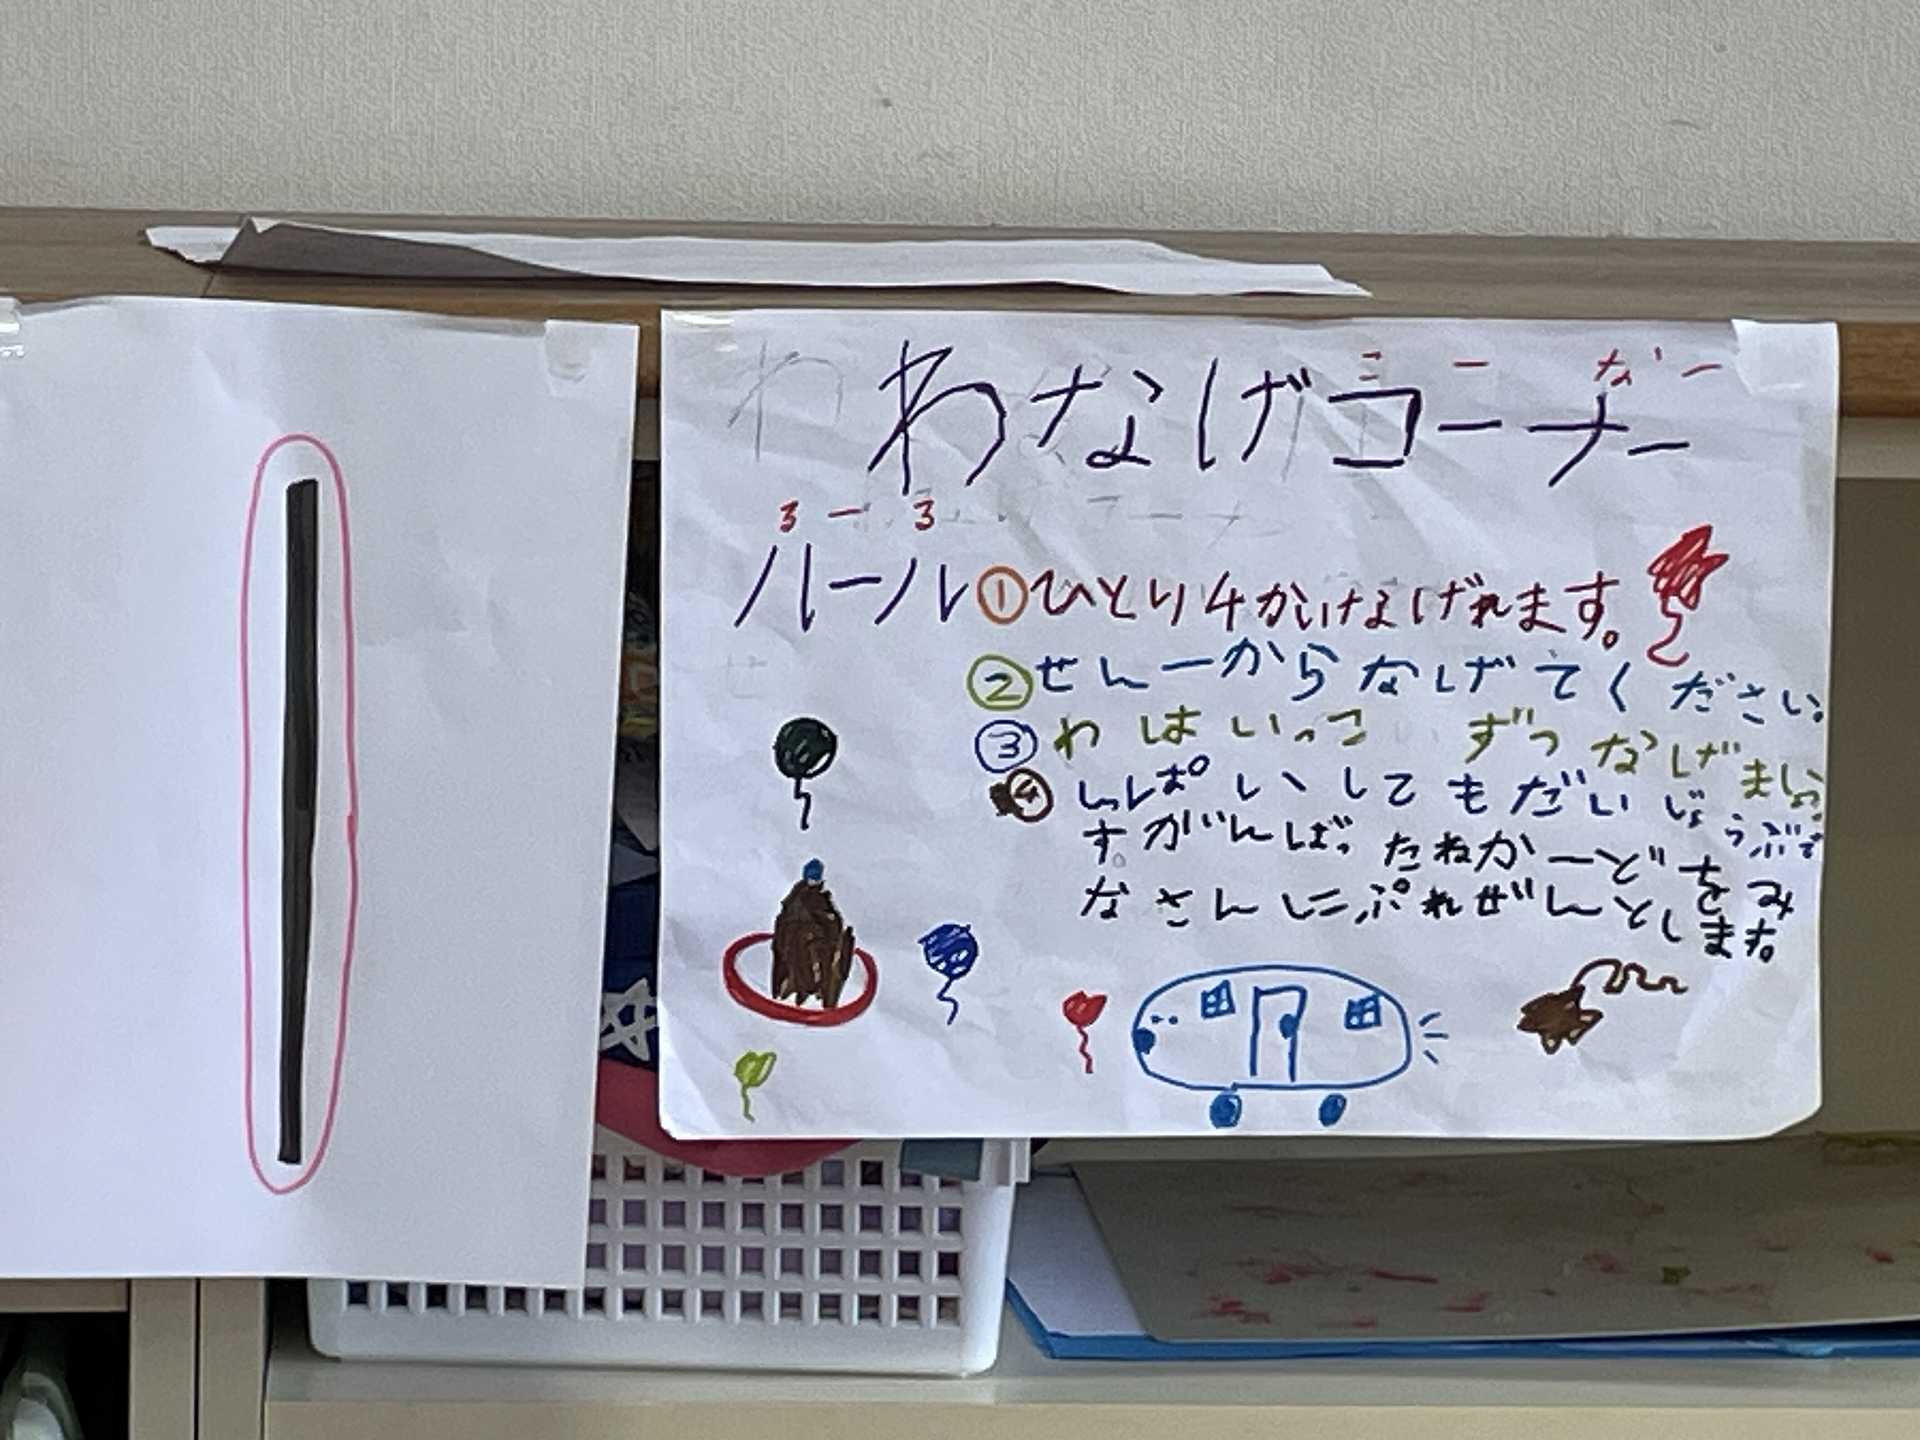 こ ー なー
わなげコーナー
る ー る
ルール①ひとり4かいなげれます。
②せんーからなげてください。
③わはいっこ ずつなげましょう
④しっぱいしてもだいじょうぶで
す。がんばったねかーどをみ
なさんにぷれぜんとします。